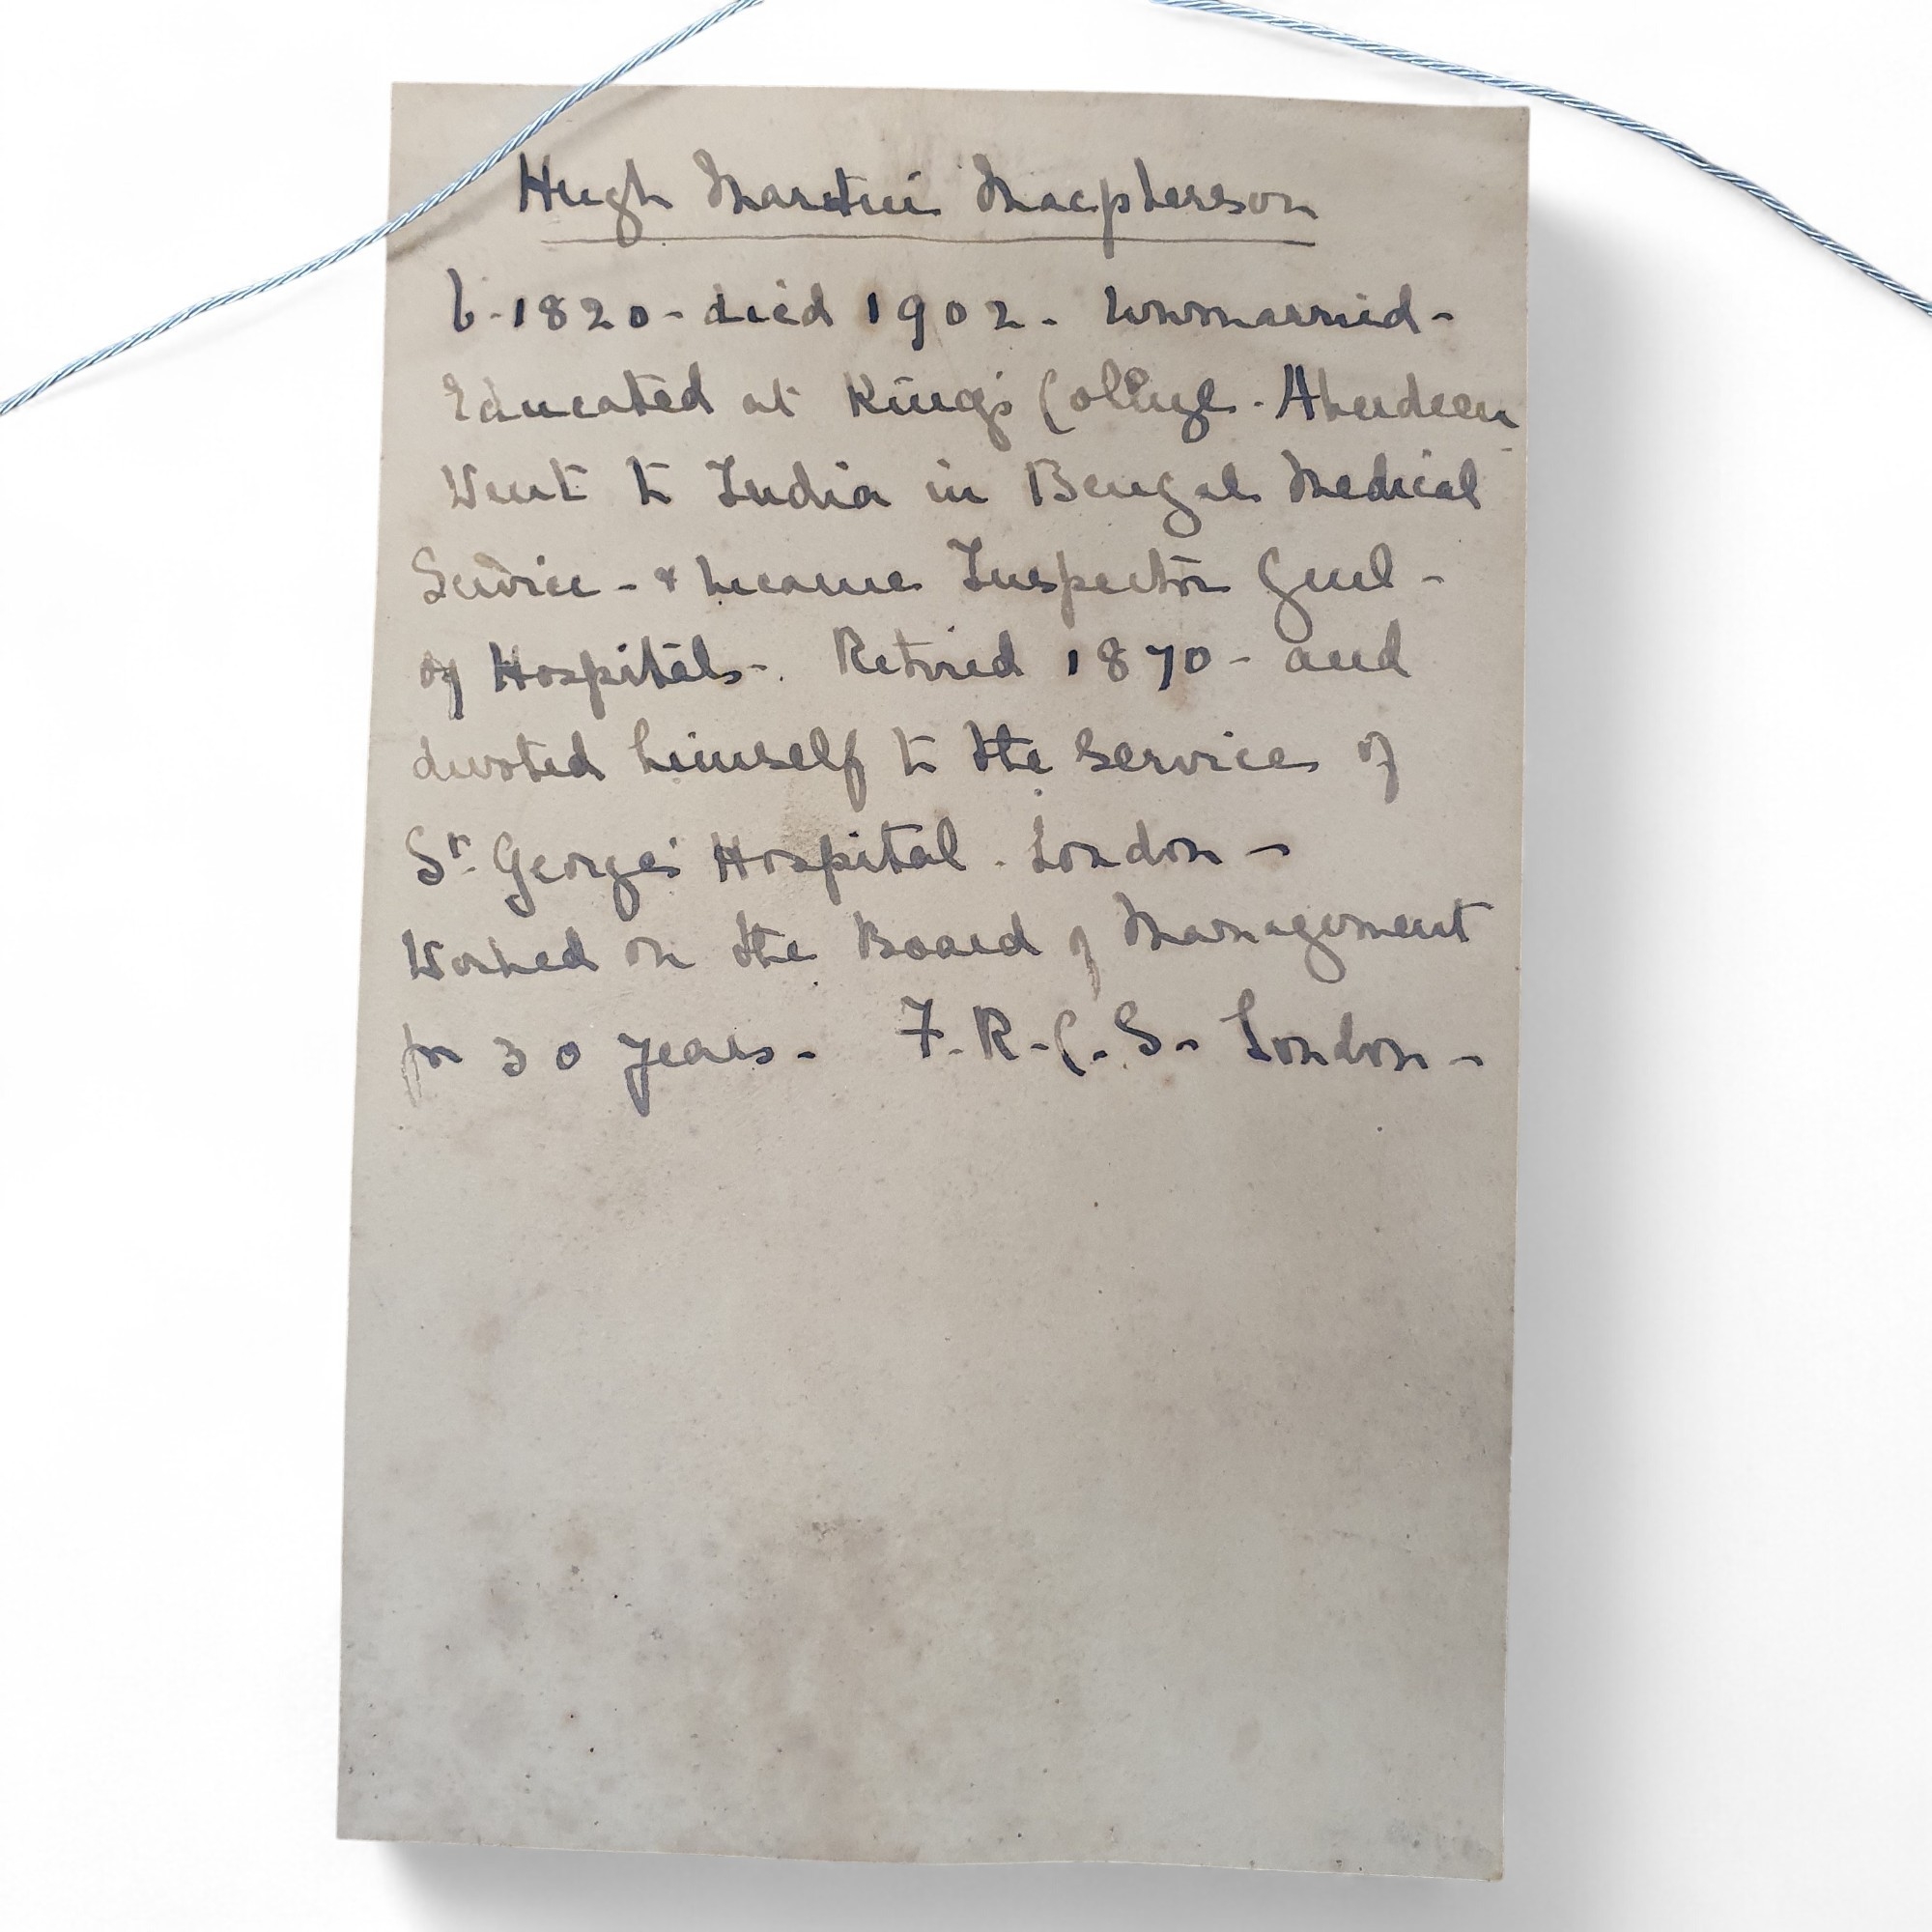 Hugh Martin Macpherson
b. 1820 - died 1902 - Unmarried -
Educated at King's College. Aberdeen
Went to India in Bengal Medical
Service - & became Inspector Genl -
of Hospitals -. Retired 1870 - and
devoted himself to the service of
St. George's Hospital. London -
Worked on the Board of Management
for 30 years - F. R. C. S. London -